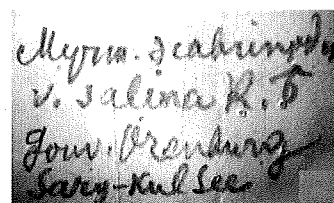 Myrm. scabrinod.
v. salina R. ♉
Gouv. Orenburg
Sary-Kul See